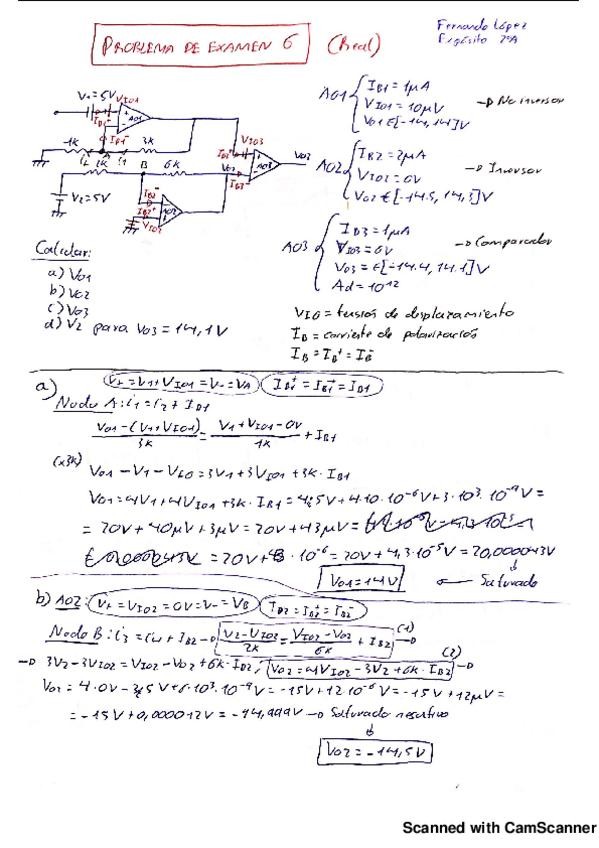 Fernando López
Expósito 2ºA
PROBLEMA DE EXAMEN 6 (Real)
V1=5V
VIO1
IB1+
IB1-
1k
A
3k
i2
i1
2k
B
6k
V2=5V
IB2-
IB2+
VIO2
AO1
AO2
AO3
VIO3
VO2
VO3
AO1 { IB1=1µA
VIO1=10µV → No inversor
VO1 ∈[-14,14]V
AO2 { IB2=2µA
VIO2=0V → Inversor
VO2 ∈[-14.5, 14,3]V
AO3 { IB3=1µA
VIO3=0V → Comparador
VO3=∈[-14.4, 14.1]V
Ad=10^12
Calcular:
a) VO1
b) VO2
c) VO3
d) V2 para VO3=14,1V
VIO=tensión de desplazamiento
IB=corriente de polarización
IB=IB+=IB-
a) V+=V1+VIO1=V-=VA IB1+=IB1-=IB1
Nodo A: i1=i2+IB1
VO1-(V1+VIO1)/3k = V1+VIO1-0V/1k + IB1
(x3k) VO1-V1-VIO=3V1+3VIO1+3k·IB1
VO1=4V1+4VIO1+3k·IB1=4·5V+4·10·10^-6V+3·10^3·10^-9V=
=20V+40µV+3µV=20V+43µV=
=20V+43·10^-6=20V+4,3·10^-5V=20,000043V
VO1=14V ← Saturado
b) AO2: V+=VIO2=0V=V-=VB IB2=IB2+=IB2-
Nodo B: i3=i4+IB2 → V2-VIO2/2k = VIO2-VO2/6k + IB2 (1) →
→ 3V2-3VIO2=VIO2-VO2+6k·IB2, VO2=4VIO2-3V2+6k·IB2 (2) →
VO2=4·0V-3·5V+6·10^3·10^-9V=-15V+12·10^-6V=-15V+12µV=
=-15V+0,000012V=-14,999V → Saturado negativo
VO2=-14,5V
Scanned with CamScanner